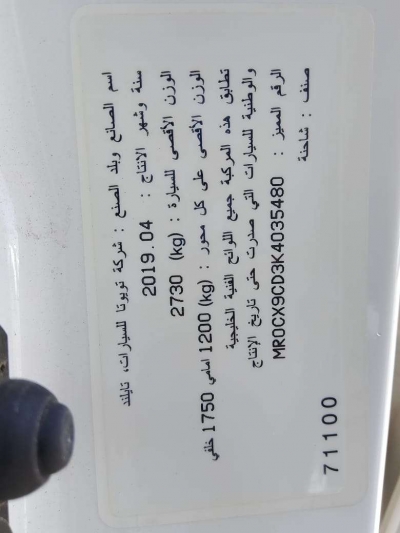 اسم الصانع وبلد الصنع : شركة تويوتا للسيارات، تايلند
سنة وشهر الانتاج : 2019.04
الوزن الأقصى للسيارة : (kg) 2730
الوزن الأقصى على كل محور : (kg) 1200 امامي 1750 خلفي
تطابق هذه المركبة جميع اللوائح الفنية الخليجية
والوطنية للسيارات التي صدرت حتى تاريخ الإنتاج
الرقم المميز : MR0CX9CD3K4035480
صنف : شاحنة
71100